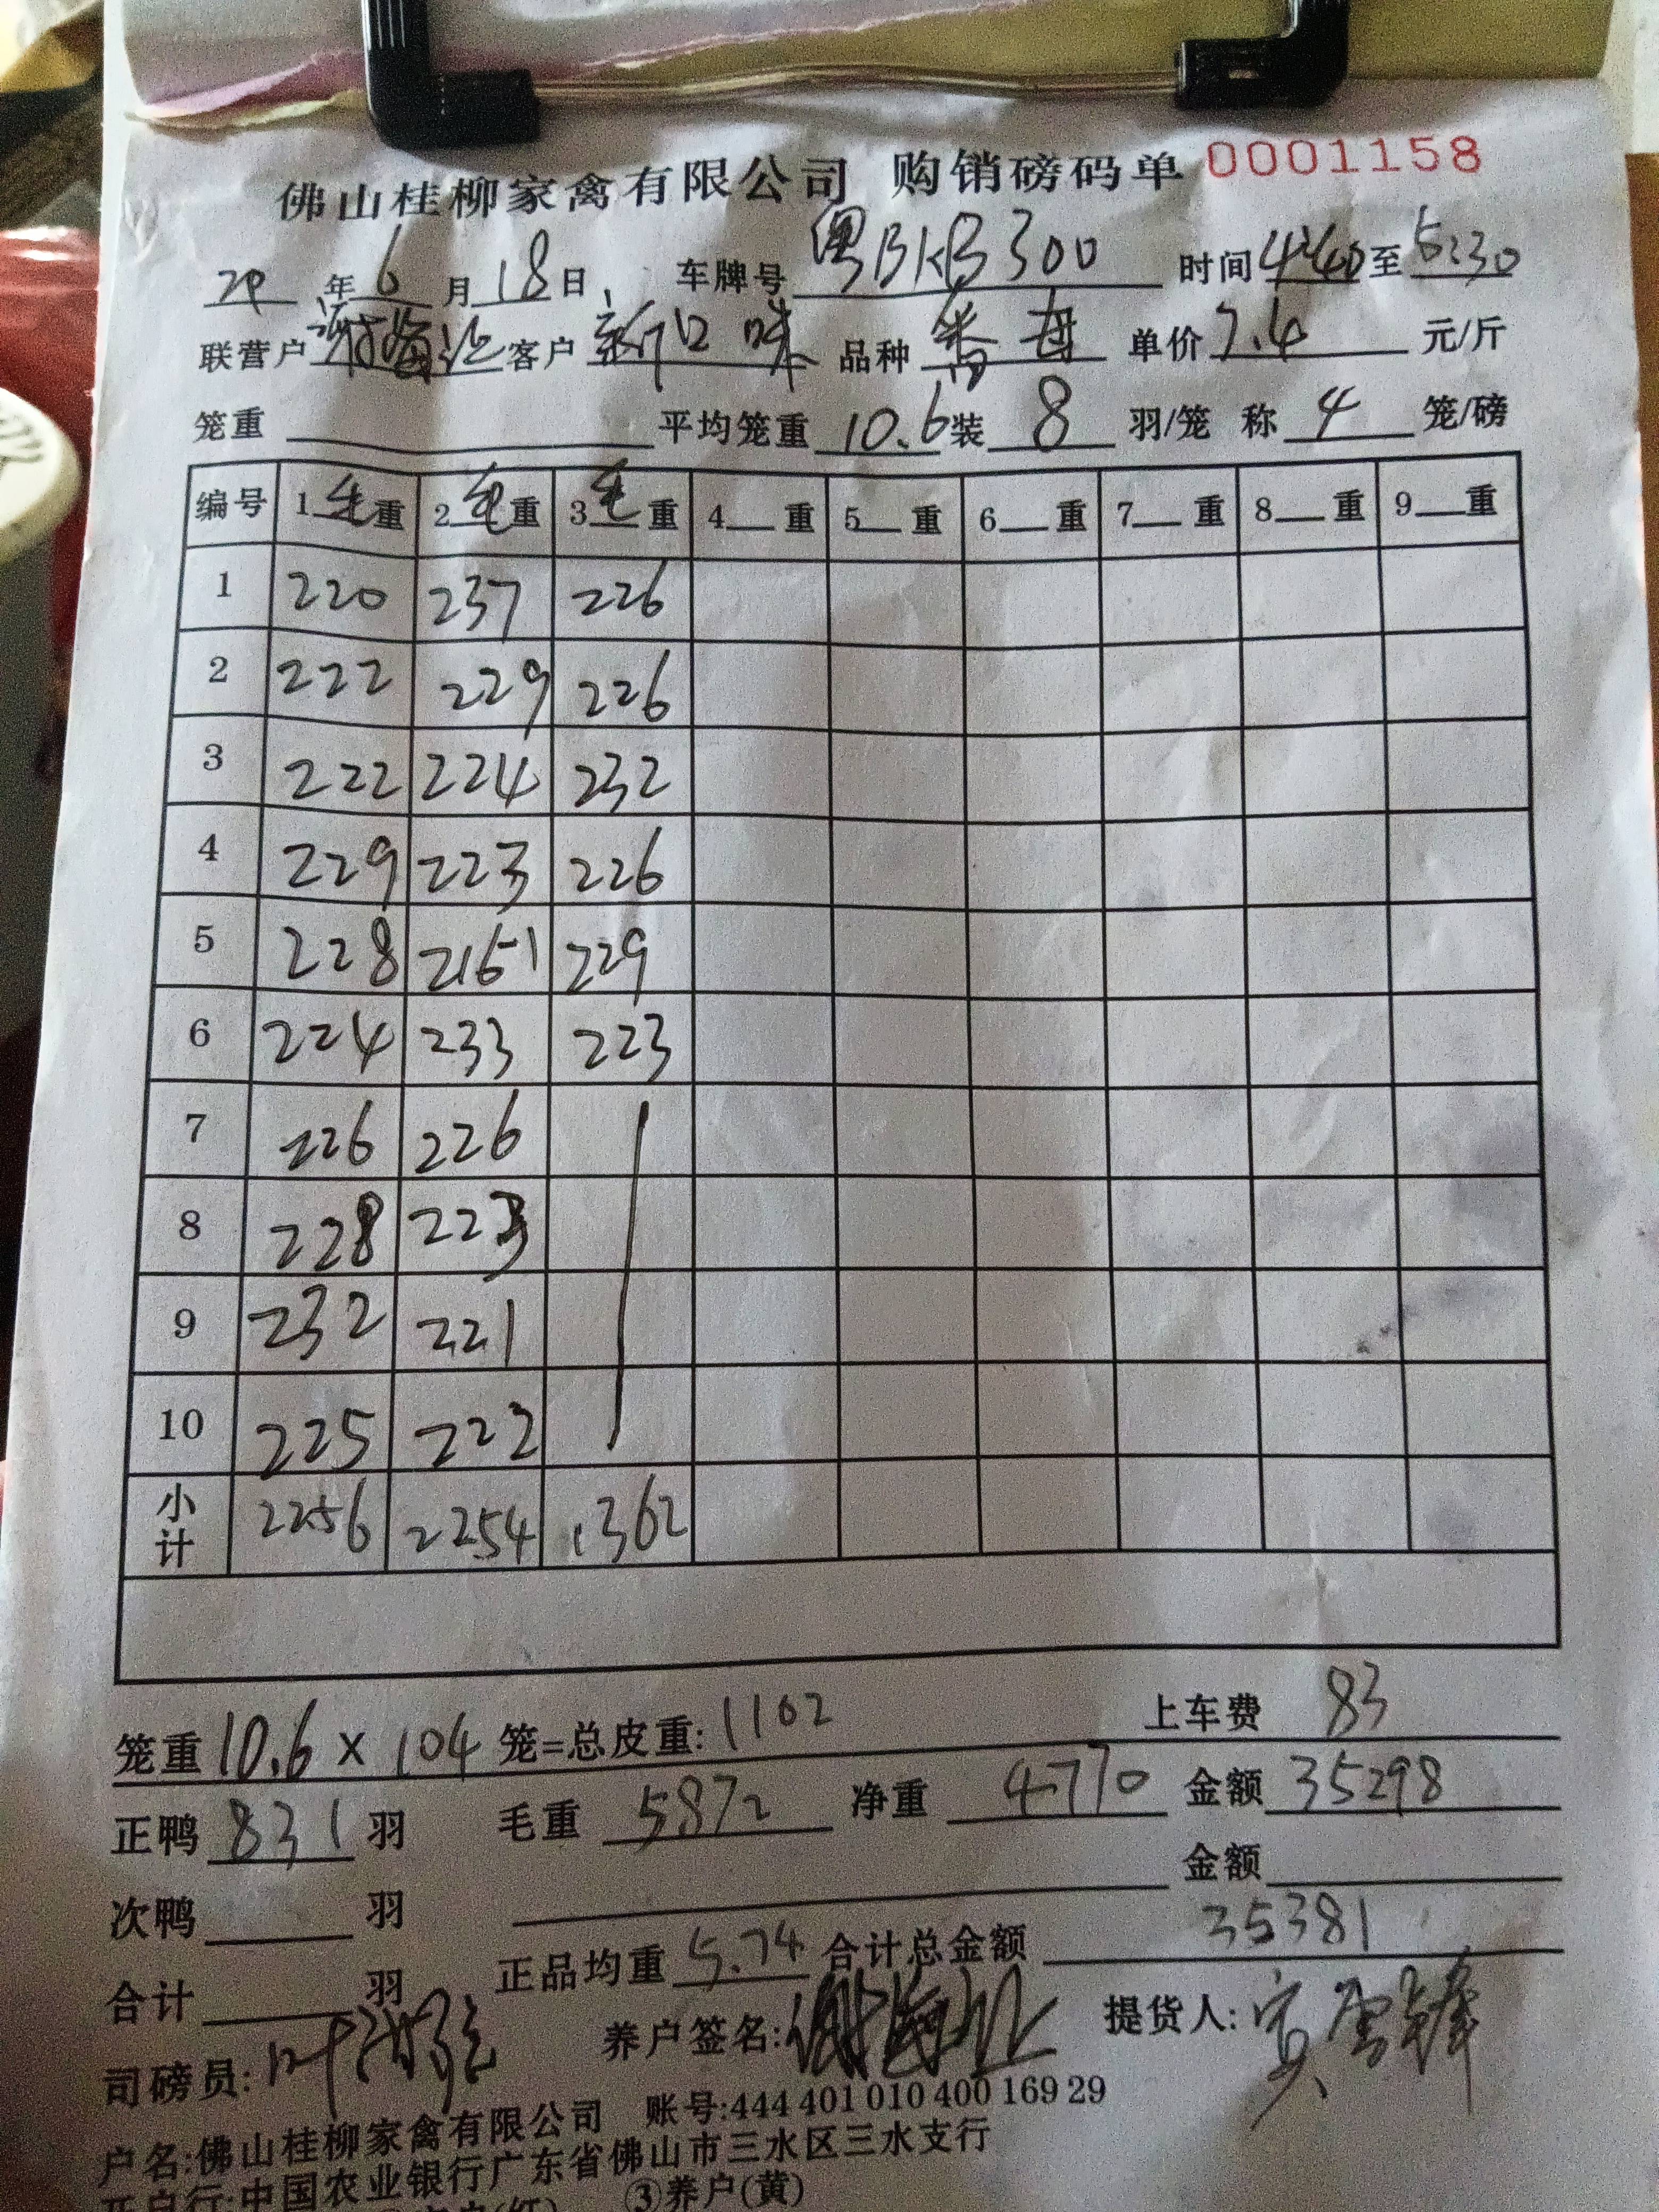 佛山桂柳家禽有限公司 购销磅码单 0001158
年 6 月 18 日 车牌号 粤BKB300 时间 4:40 至 5:30
联营户 客户 新口味 品种 番母 单价 7.4 元/斤
笼重 平均笼重 10.6 装 8 羽/笼 称 4 笼/磅
编号 1 毛 重 2 毛 重 3 毛 重 4 重 5 重 6 重 7 重 8 重 9 重
1 220 237 226
2 222 229 226
3 222 224 232
4 229 223 226
5 228 216 229
6 224 233 223
7 226 226
8 228 223
9 232 221
10 225 222
小计 2256 2254 1362
笼重 10.6 x 104 笼=总皮重: 1102 上车费 83
正鸭 831 羽 毛重 5872 净重 4770 金额 35298
次鸭 羽 金额
合计 羽 正品均重 5.74 合计总金额 35381
司磅员: 养户签名: 提货人:
户名:佛山桂柳家禽有限公司 账号:444 401 010 400 169 29
开户行:中国农业银行广东省佛山市三水区三水支行
③养户(黄)